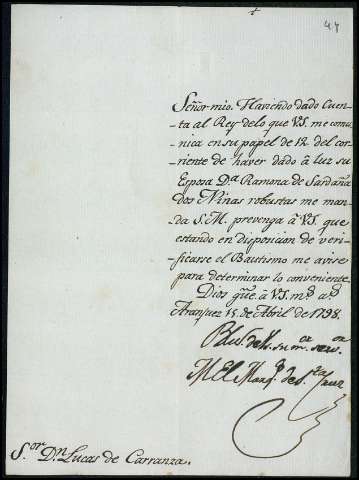 44
Señor mio. Haviendo dado Cuen-
-ta al Rey de lo que V.S. me comu-
-nica en su papel de 12 del cor-
-riente de haver dado â luz su
Esposa D.ª Ramona de Sardaña
dos Niñas robustas me man-
-da S.M. prevenga â V.S. que
estando en disposicion de veri-
-ficarse el Bautismo me avise
para determinar lo conveniente.
Dios gũe â V.S. m.s a.s
Aranjuez 15 de Abril de 1798.
El Marq.s de S.ta Cruz
S.or D.n Lucas de Carranza.